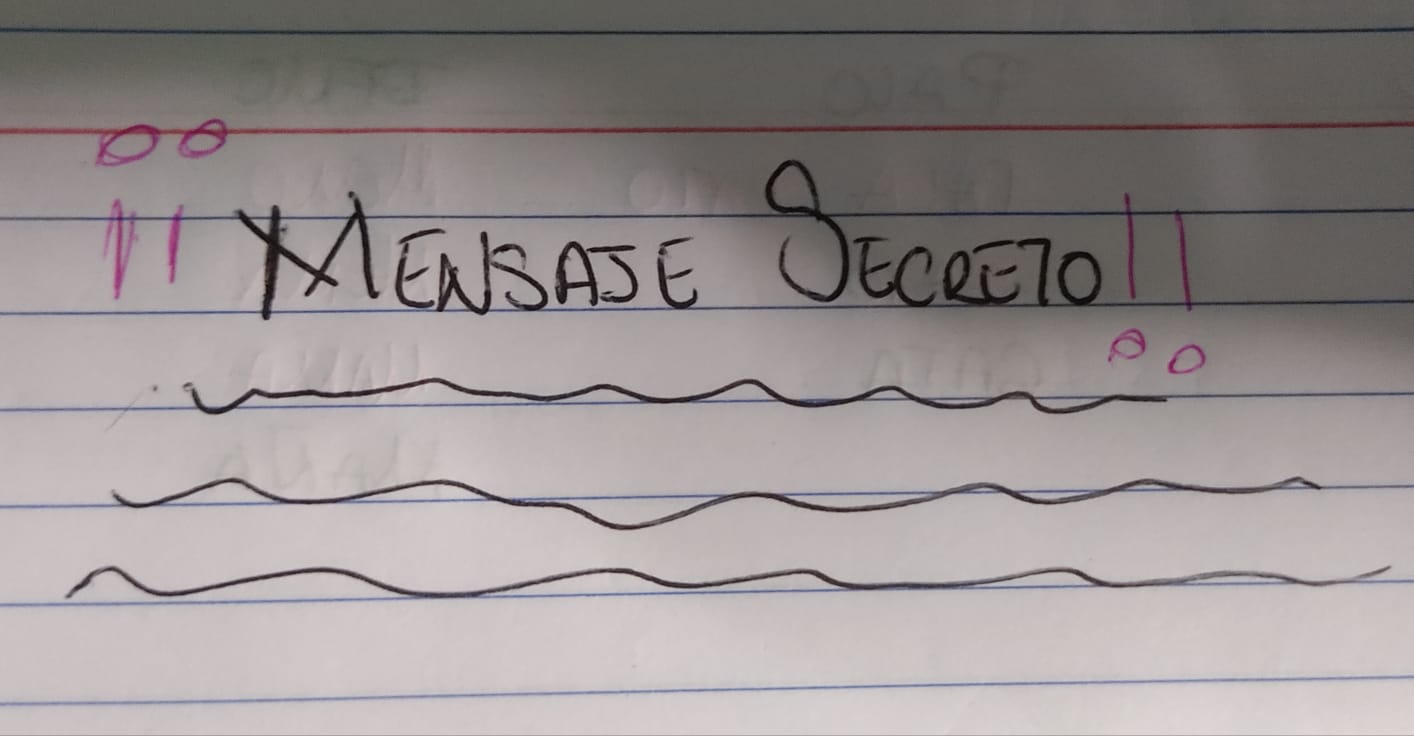 ¡¡MENSAJE SECRETO!!